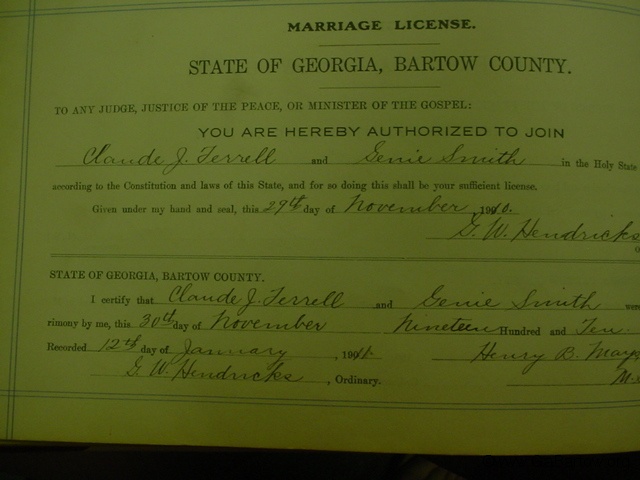 MARRIAGE LICENSE.
STATE OF GEORGIA, BARTOW COUNTY.
TO ANY JUDGE, JUSTICE OF THE PEACE, OR MINISTER OF THE GOSPEL:
YOU ARE HEREBY AUTHORIZED TO JOIN
Claude J. Terrell and Genie Smith in the Holy State
according to the Constitution and laws of this State, and for so doing this shall be your sufficient license.
Given under my hand and seal, this 29th day of November, 1910.
G. W. Hendricks
STATE OF GEORGIA, BARTOW COUNTY.
I certify that Claude J. Terrell and Genie Smith were
rimony by me, this 30th day of November Nineteen Hundred and Ten
Recorded 12th day of January, 1911. Henry B. Mays
G. W. Hendricks, Ordinary.